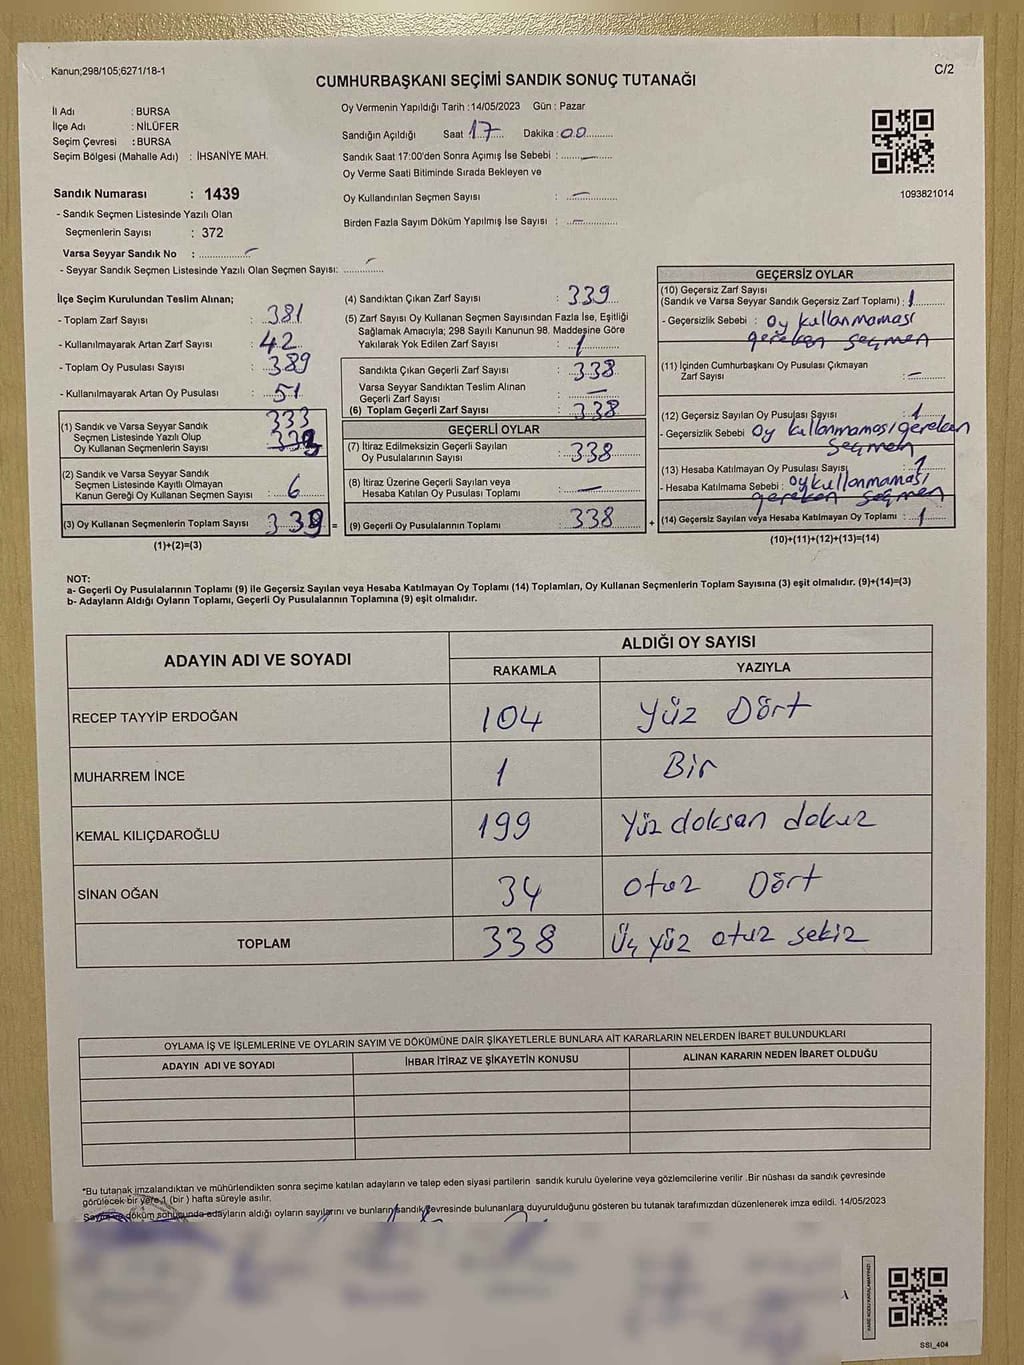 Kanun;298/105;6271/18-1
C/2
CUMHURBAŞKANI SEÇİMİ SANDIK SONUÇ TUTANAĞI
İl Adı : BURSA
İlçe Adı : NİLÜFER
Seçim Çevresi : BURSA
Seçim Bölgesi (Mahalle Adı) : İHSANİYE MAH.
Sandık Numarası : 1439
- Sandık Seçmen Listesinde Yazılı Olan
Seçmenlerin Sayısı : 372
Varsa Seyyar Sandık No : -
- Seyyar Sandık Seçmen Listesinde Yazılı Olan Seçmen Sayısı: -
Oy Vermenin Yapıldığı Tarih :14/05/2023 Gün : Pazar
Sandığın Açıldığı Saat 17 Dakika : 00
Sandık Saat 17:00'den Sonra Açımış İse Sebebi : -
Oy Verme Saati Bitiminde Sırada Bekleyen ve
Oy Kullandırılan Seçmen Sayısı : -
Birden Fazla Sayım Döküm Yapılmış İse Sayısı : -
1093821014
İlçe Seçim Kurulundan Teslim Alınan;
- Toplam Zarf Sayısı : 381
- Kullanılmayarak Artan Zarf Sayısı : 42
- Toplam Oy Pusulası Sayısı : 389
- Kullanılmayarak Artan Oy Pusulası : 51
(1) Sandık ve Varsa Seyyar Sandık 333
Seçmen Listesinde Yazılı Olup
Oy Kullanan Seçmenlerin Sayısı
(2) Sandık ve Varsa Seyyar Sandık
Seçmen Listesinde Kayıtlı Olmayan
Kanun Gereği Oy Kullanan Seçmen Sayısı : 6
(3) Oy Kullanan Seçmenlerin Toplam Sayısı : 339 =
(1)+(2)=(3)
(4) Sandıktan Çıkan Zarf Sayısı : 339
(5) Zarf Sayısı Oy Kullanan Seçmen Sayısından Fazla İse, Eşitliği
Sağlamak Amacıyla; 298 Sayılı Kanunun 98. Maddesine Göre
Yakılarak Yok Edilen Zarf Sayısı : 1
Sandıkta Çıkan Geçerli Zarf Sayısı : 338
Varsa Seyyar Sandıktan Teslim Alınan
Geçerli Zarf Sayısı : -
(6) Toplam Geçerli Zarf Sayısı : 338
GEÇERLİ OYLAR
(7) İtiraz Edilmeksizin Geçerli Sayılan
Oy Pusulalarının Sayısı : 338
(8) İtiraz Üzerine Geçerli Sayılan veya
Hesaba Katılan Oy Pusulası Toplamı : -
(9) Geçerli Oy Pusulalarının Toplamı : 338 +
GEÇERSİZ OYLAR
(10) Geçersiz Zarf Sayısı
(Sandık ve Varsa Seyyar Sandık Geçersiz Zarf Toplamı) : 1
- Geçersizlik Sebebi : oy kullanmaması
gereken seçmen
(11) İçinden Cumhurbaşkanı Oy Pusulası Çıkmayan
Zarf Sayısı : -
(12) Geçersiz Sayılan Oy Pusulası Sayısı : 1
- Geçersizlik Sebebi oy kullanması gereken
seçmen
(13) Hesaba Katılmayan Oy Pusulası Sayısı : 1
- Hesaba Katılmama Sebebi : oy kullanmaması
gereken seçmen
(14) Geçersiz Sayılan veya Hesaba Katılmayan Oy Toplamı : 1
(10)+(11)+(12)+(13)=(14)
NOT:
a- Geçerli Oy Pusulalarının Toplamı (9) ile Geçersiz Sayılan veya Hesaba Katılmayan Oy Toplamı (14) Toplamları, Oy Kullanan Seçmenlerin Toplam Sayısına (3) eşit olmalıdır. (9)+(14)=(3)
b- Adayların Aldığı Oyların Toplamı, Geçerli Oy Pusulalarının Toplamına (9) eşit olmalıdır.
ADAYIN ADI VE SOYADI
ALDIĞI OY SAYISI
RAKAMLA YAZIYLA
RECEP TAYYİP ERDOĞAN 104 Yüz Dört
MUHARREM İNCE 1 Bir
KEMAL KILIÇDAROĞLU 199 Yüz doksan dokuz
SİNAN OĞAN 34 otuz Dört
TOPLAM 338 Üç yüz otuz sekiz
OYLAMA İŞ VE İŞLEMLERİNE VE OYLARIN SAYIM VE DÖKÜMÜNE DAİR ŞİKAYETLERLE BUNLARA AİT KARARLARIN NELERDEN İBARET BULUNDUKLARI
ADAYIN ADI VE SOYADI İHBAR İTİRAZ VE ŞİKAYETİN KONUSU ALINAN KARARIN NEDEN İBARET OLDUĞU
*Bu tutanak imzalandıktan ve mühürlendikten sonra seçime katılan adayların ve talep eden siyasi partilerin sandık kurulu üyelerine veya gözlemcilerine verilir .Bir nüshası da sandık çevresinde
görülecek bir yere 1 (bir ) hafta süreyle asılır.
Sayım ve döküm sonucunda adayların aldığı oyların sayılarını ve bunların sandık çevresinde bulunanlara duyurulduğunu gösteren bu tutanak tarafımızdan düzenlenerek imza edildi. 14/05/2023
SSI_404